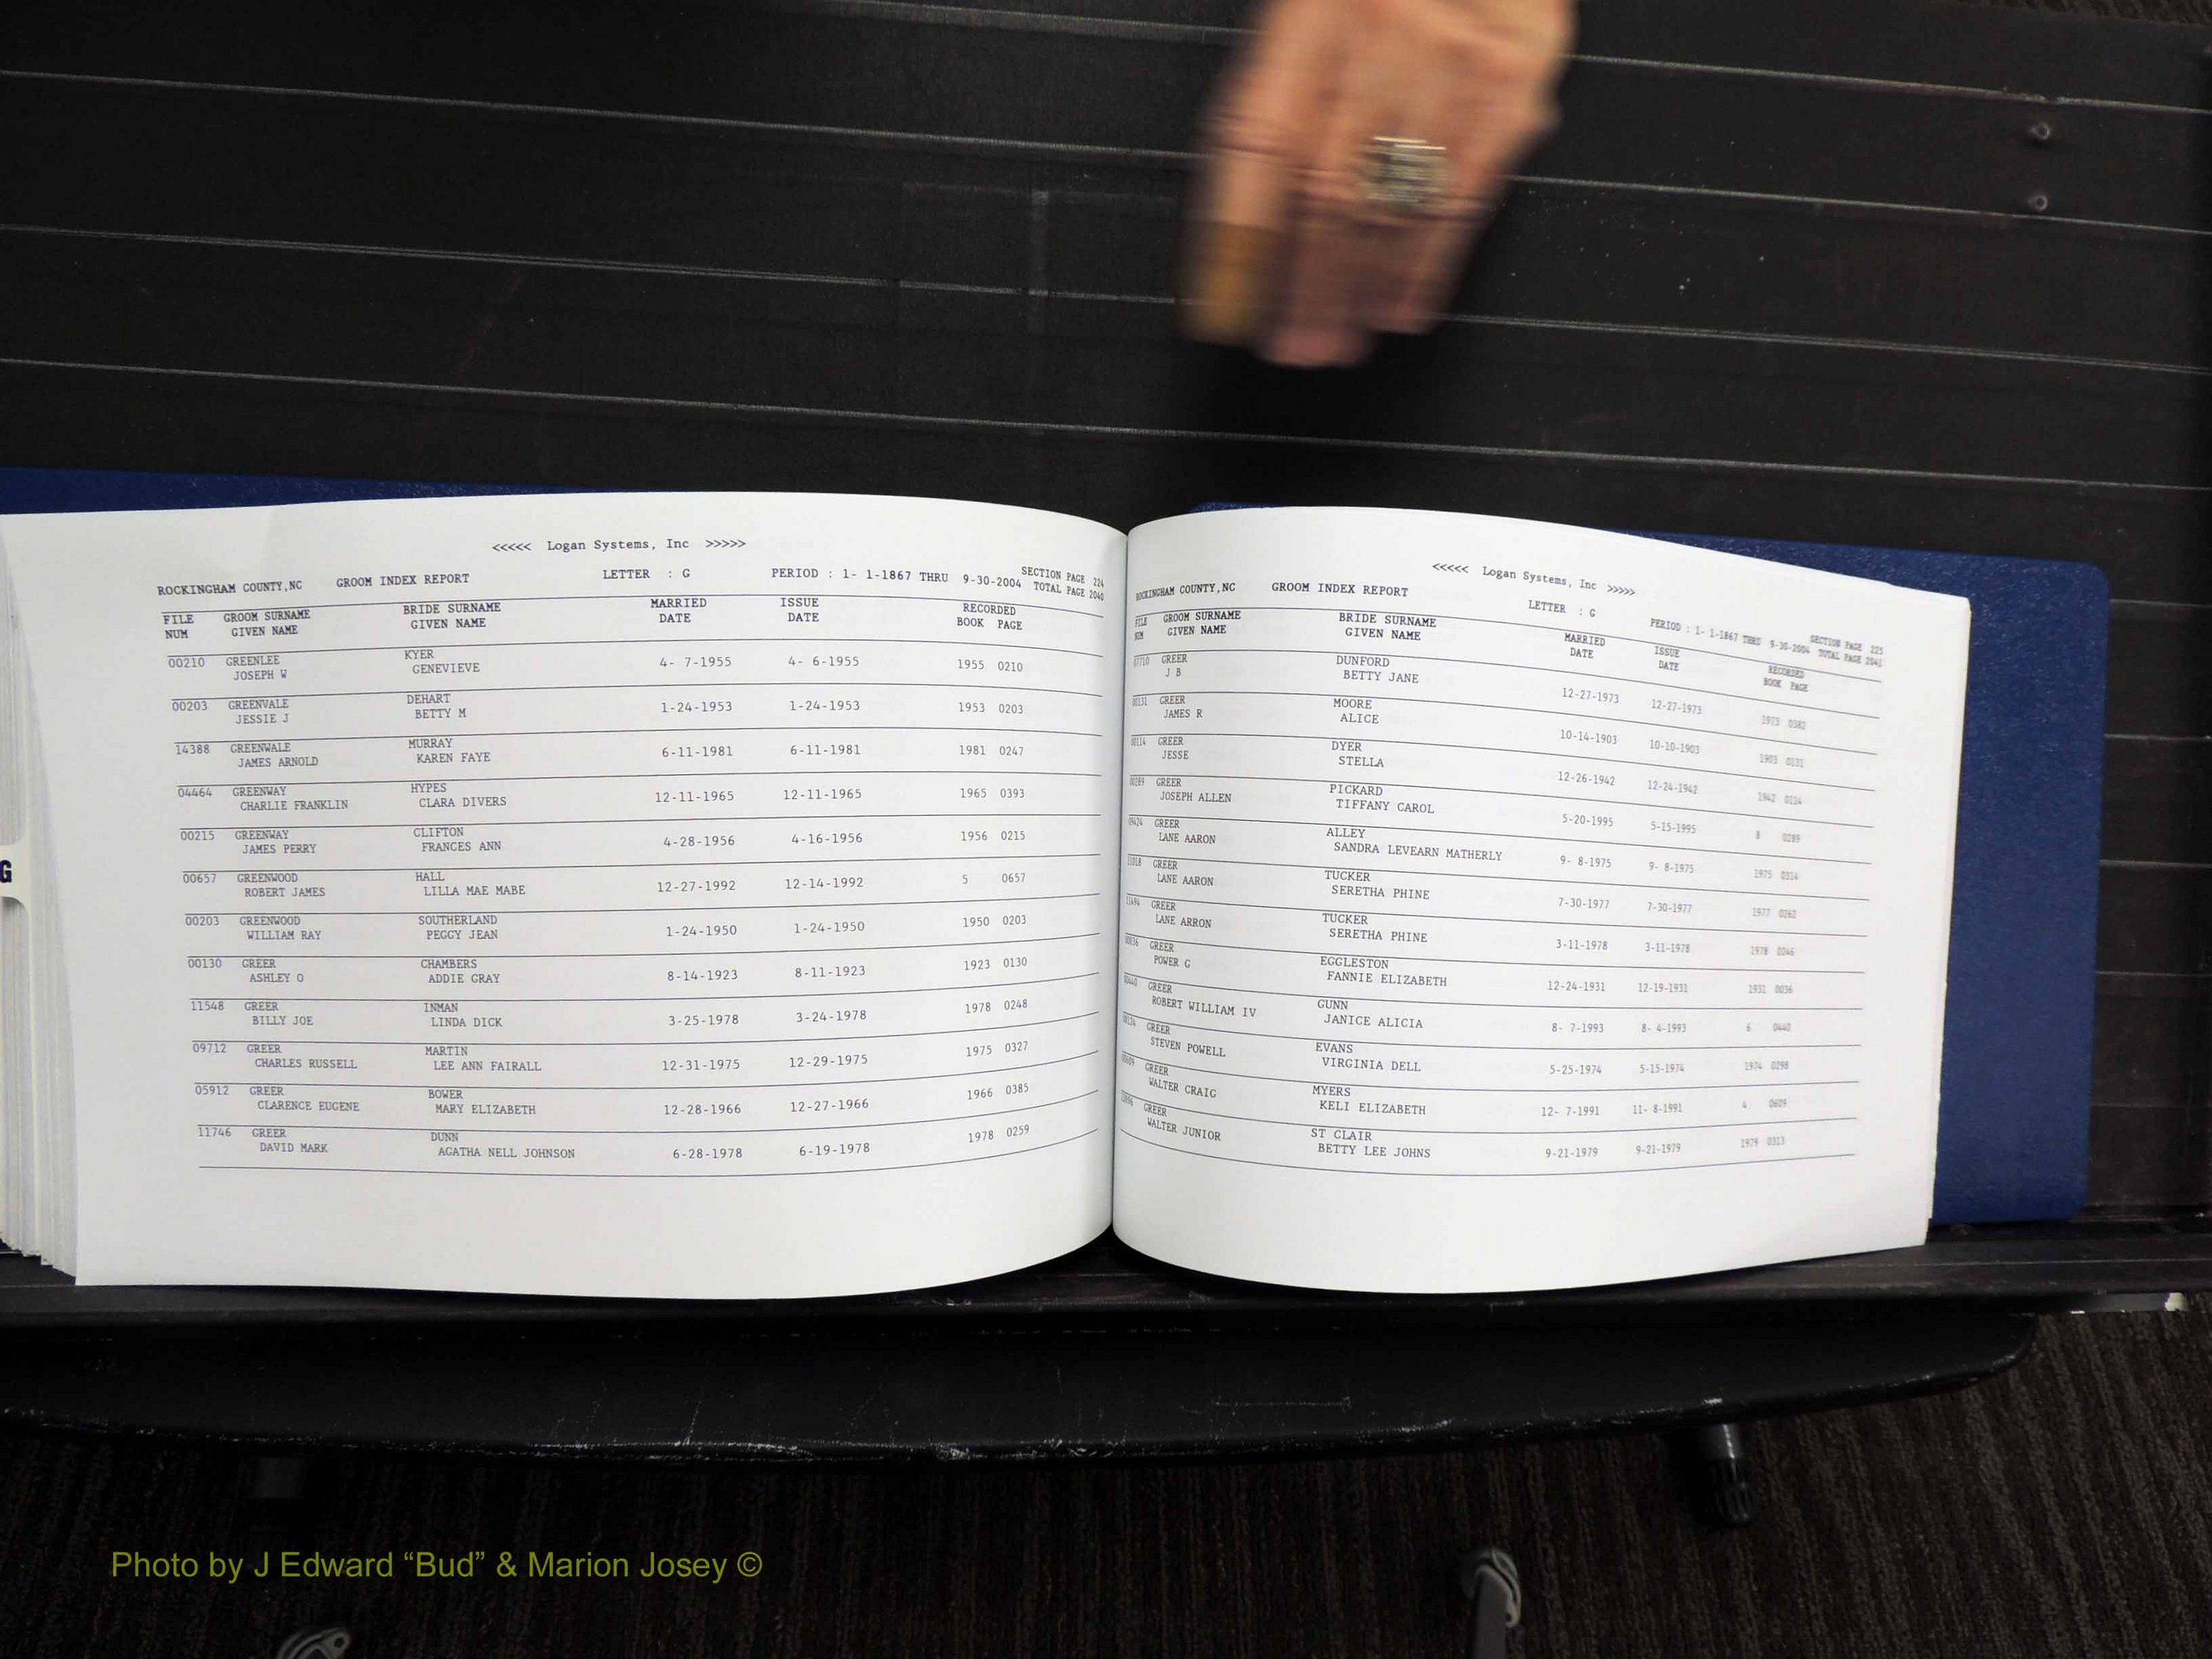 G
<<<<< Logan Systems, Inc >>>>>
ROCKINGHAM COUNTY,NC GROOM INDEX REPORT LETTER : G PERIOD : 1- 1-1867 THRU 9-30-2004 SECTION PAGE 224
TOTAL PAGE 2040
FILE GROOM SURNAME BRIDE SURNAME MARRIED ISSUE RECORDED
NUM GIVEN NAME GIVEN NAME DATE DATE BOOK PAGE
00210 GREENLEE KYER 4- 7-1955 4- 6-1955 1955 0210
JOSEPH W GENEVIEVE
00203 GREENVALE DEHART 1-24-1953 1-24-1953 1953 0203
JESSIE J BETTY M
14388 GREENWALE MURRAY 6-11-1981 6-11-1981 1981 0247
JAMES ARNOLD KAREN FAYE
04464 GREENWAY HYPES 12-11-1965 12-11-1965 1965 0393
CHARLIE FRANKLIN CLARA DIVERS
00215 GREENWAY CLIFTON 4-28-1956 4-16-1956 1956 0215
JAMES PERRY FRANCES ANN
00657 GREENWOOD HALL 12-27-1992 12-14-1992 5 0657
ROBERT JAMES LILLA MAE MABE
00203 GREENWOOD SOUTHERLAND 1-24-1950 1-24-1950 1950 0203
WILLIAM RAY PEGGY JEAN
00130 GREER CHAMBERS 8-14-1923 8-11-1923 1923 0130
ASHLEY O ADDIE GRAY
11548 GREER INMAN 3-25-1978 3-24-1978 1978 0248
BILLY JOE LINDA DICK
09712 GREER MARTIN 12-31-1975 12-29-1975 1975 0327
CHARLES RUSSELL LEE ANN FAIRALL
05912 GREER BOWER 12-28-1966 12-27-1966 1966 0385
CLARENCE EUGENE MARY ELIZABETH
11746 GREER DUNN 6-28-1978 6-19-1978 1978 0259
DAVID MARK AGATHA NELL JOHNSON
<<<<< Logan Systems, Inc >>>>>
ROCKINGHAM COUNTY,NC GROOM INDEX REPORT LETTER : G PERIOD : 1- 1-1867 THRU 9-30-2004 SECTION PAGE 225
TOTAL PAGE 2041
FILE GROOM SURNAME BRIDE SURNAME MARRIED ISSUE RECORDED
NUM GIVEN NAME GIVEN NAME DATE DATE BOOK PAGE
07710 GREER DUNFORD 12-27-1973 12-27-1973 1973 0382
J B BETTY JANE
00131 GREER MOORE 10-14-1903 10-10-1903 1903 0131
JAMES R ALICE
00114 GREER DYER 12-26-1942 12-24-1942 1942 0114
JESSE STELLA
00289 GREER PICKARD 5-20-1995 5-15-1995 8 0289
JOSEPH ALLEN TIFFANY CAROL
GREER ALLEY 9- 8-1975 9- 8-1975 1975 0314
LANE AARON SANDRA LEVEARN MATHERLY
11018 GREER TUCKER 7-30-1977 7-30-1977 1977 0262
LANE AARON SERETHA PHINE
11494 GREER TUCKER 3-11-1978 3-11-1978 1978 0246
LANE ARRON SERETHA PHINE
00036 GREER EGGLESTON 12-24-1931 12-19-1931 1931 0036
POWER G FANNIE ELIZABETH
00440 GREER GUNN 8- 7-1993 8- 4-1993 6 0440
ROBERT WILLIAM IV JANICE ALICIA
GREER EVANS 5-25-1974 5-15-1974 1974 0298
STEVEN POWELL VIRGINIA DELL
00609 GREER MYERS 12- 7-1991 11- 8-1991 4 0609
WALTER CRAIG KELI ELIZABETH
GREER ST CLAIR 9-21-1979 9-21-1979 1979 0313
WALTER JUNIOR BETTY LEE JOHNS
Photo by J Edward “Bud” & Marion Josey ©